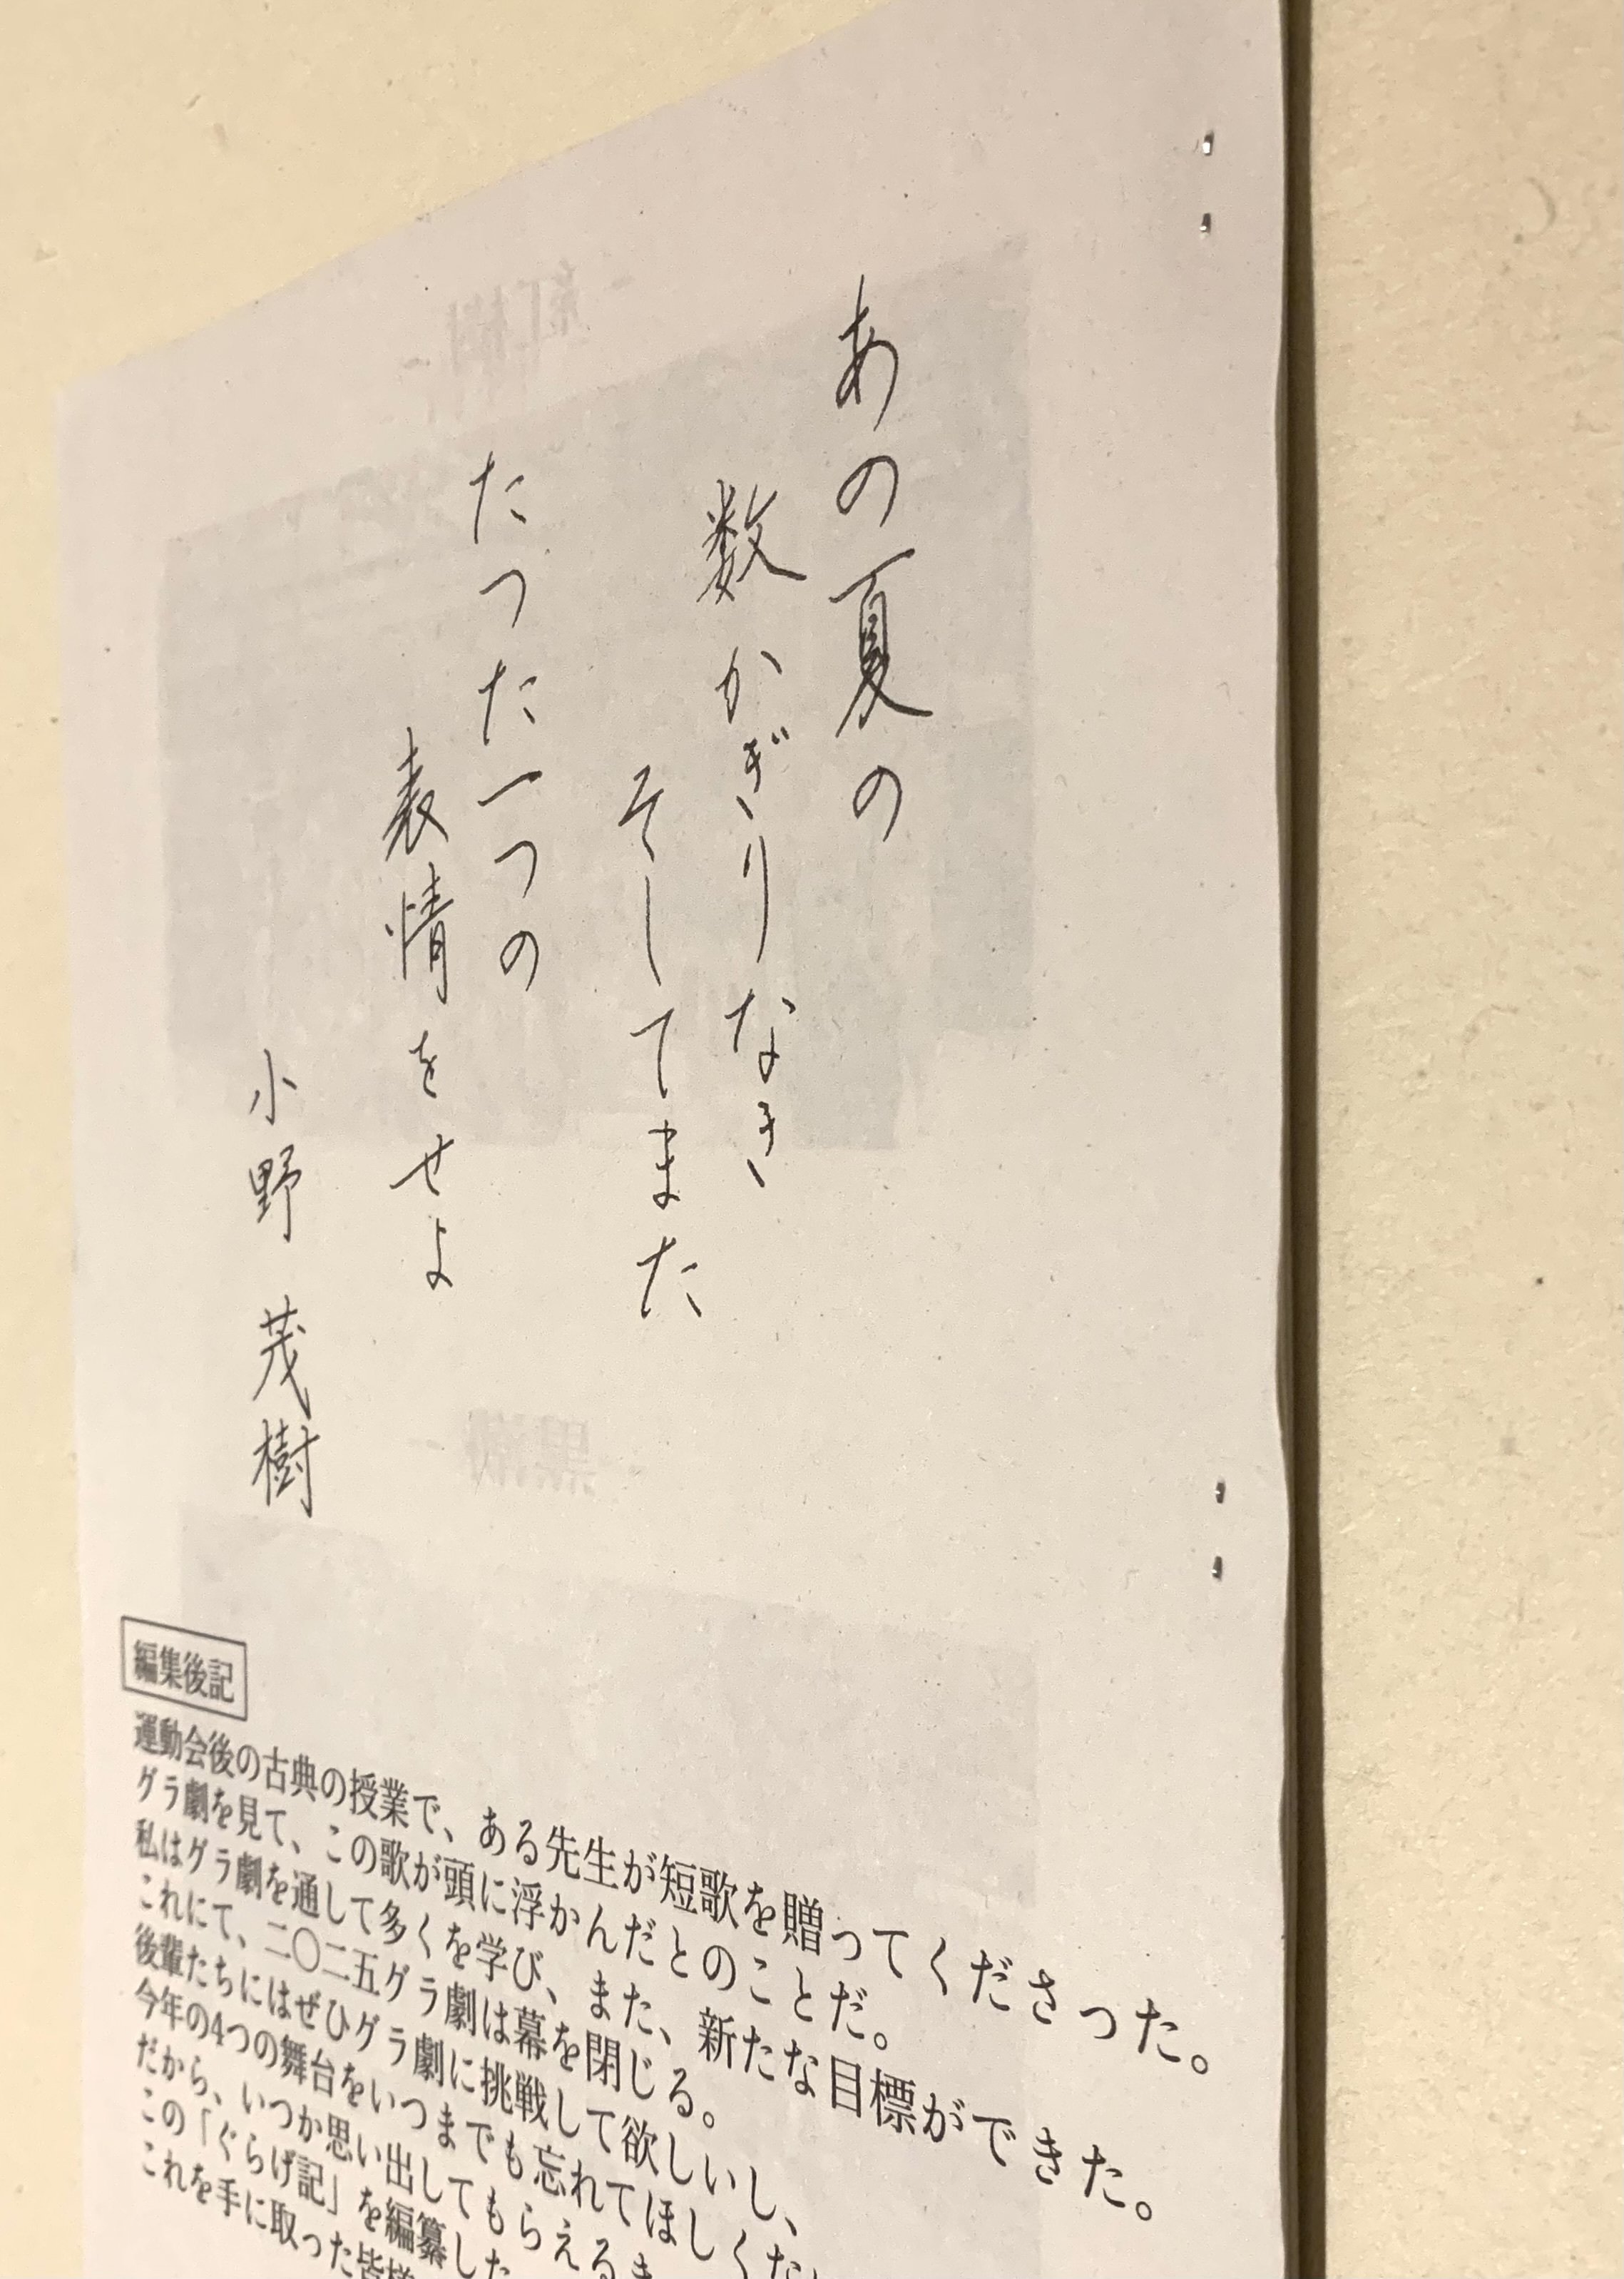 あの夏の
数かぎりなき
そしてまた
たった一つの
表情をせよ
小野 茂樹
編集後記
運動会後の古典の授業で、ある先生が短歌を贈ってくださった。
グラ劇を見て、この歌が頭に浮かんだとのことだ。
私はグラ劇を通して多くを学び、また、新たな目標ができた。
これにて、二〇二五グラ劇は幕を閉じる。
後輩たちにはぜひグラ劇に挑戦して欲しいし、
今年の4つの舞台をいつまでも忘れてほしく
だから、いつか思い出してもらえる
この「ぐらげ記」を編纂した
これを手に取った皆様